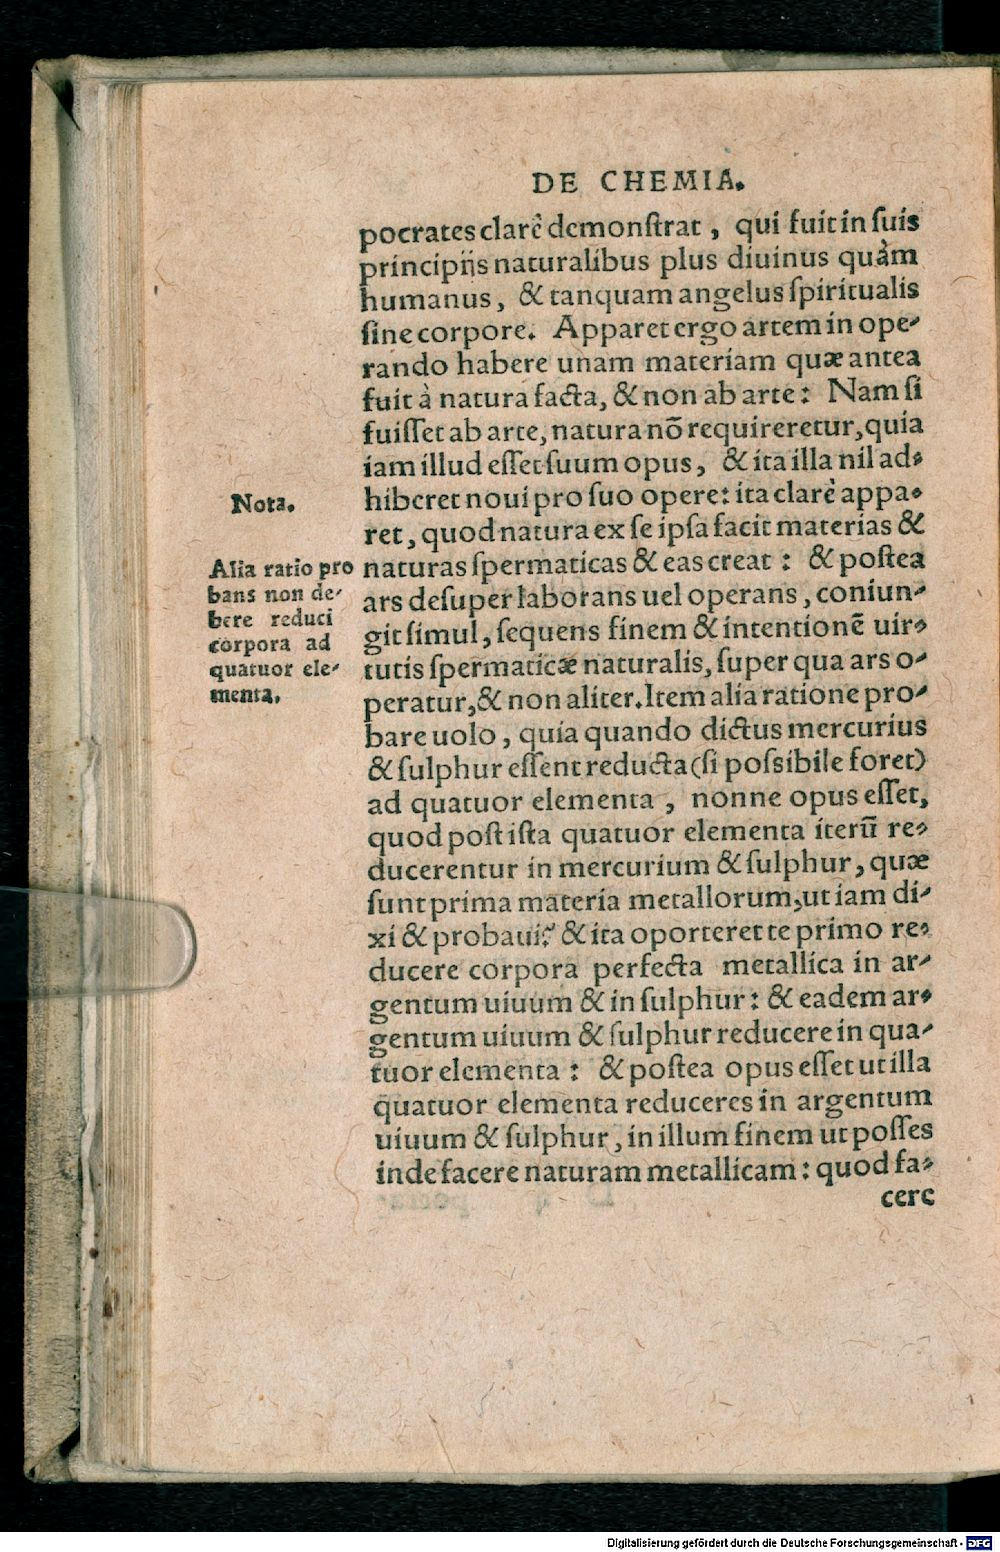 DE CHEMIA.
pocrates clarè demonſtrat, qui fuit in ſuis
principijs naturalibus plus diuinus quàm
humanus, & tanquam angelus ſpiritualis
ſine corpore. Apparet ergo artem in ope-
rando habere unam materiam quæ antea
fuit à natura facta, & non ab arte: Nam ſi
fuiſſet ab arte, natura nõ requireretur, quia
iam illud eſſet ſuum opus, & ita illa nil ad-
hiberet noui pro ſuo opere: ita clarè appa-
ret, quod natura ex ſe ipſa facit materias &
naturas ſpermaticas & eas creat: & poſtea
ars deſuper laborans uel operans, coniun-
git ſimul, ſequens finem & intentionẽ uir-
tutis ſpermaticæ naturalis, ſuper qua ars o-
peratur, & non aliter. Item alia ratione pro-
bare uolo, quia quando dictus mercurius
& ſulphur eſſent reducta (ſi poſsibile foret)
ad quatuor elementa, nonne opus eſſet,
quod poſt iſta quatuor elementa iterũ re-
ducerentur in mercurium & ſulphur, quæ
ſunt prima materia metallorum, ut iam di-
xi & probaui? & ita oporteret te primo re-
ducere corpora perfecta metallica in ar-
gentum uiuum & in ſulphur: & eadem ar-
gentum uiuum & ſulphur reducere in qua-
tuor elementa: & poſtea opus eſſet ut illa
quatuor elementa reduceres in argentum
uiuum & ſulphur, in illum finem ut poſſes
inde facere naturam metallicam: quod fa-
cere
Nota.
Alia ratio pro
bans non de-
bere reduci
corpora ad
quatuor ele-
menta.
Digitalisierung gefördert durch die Deutsche Forschungsgemeinschaft - DFG